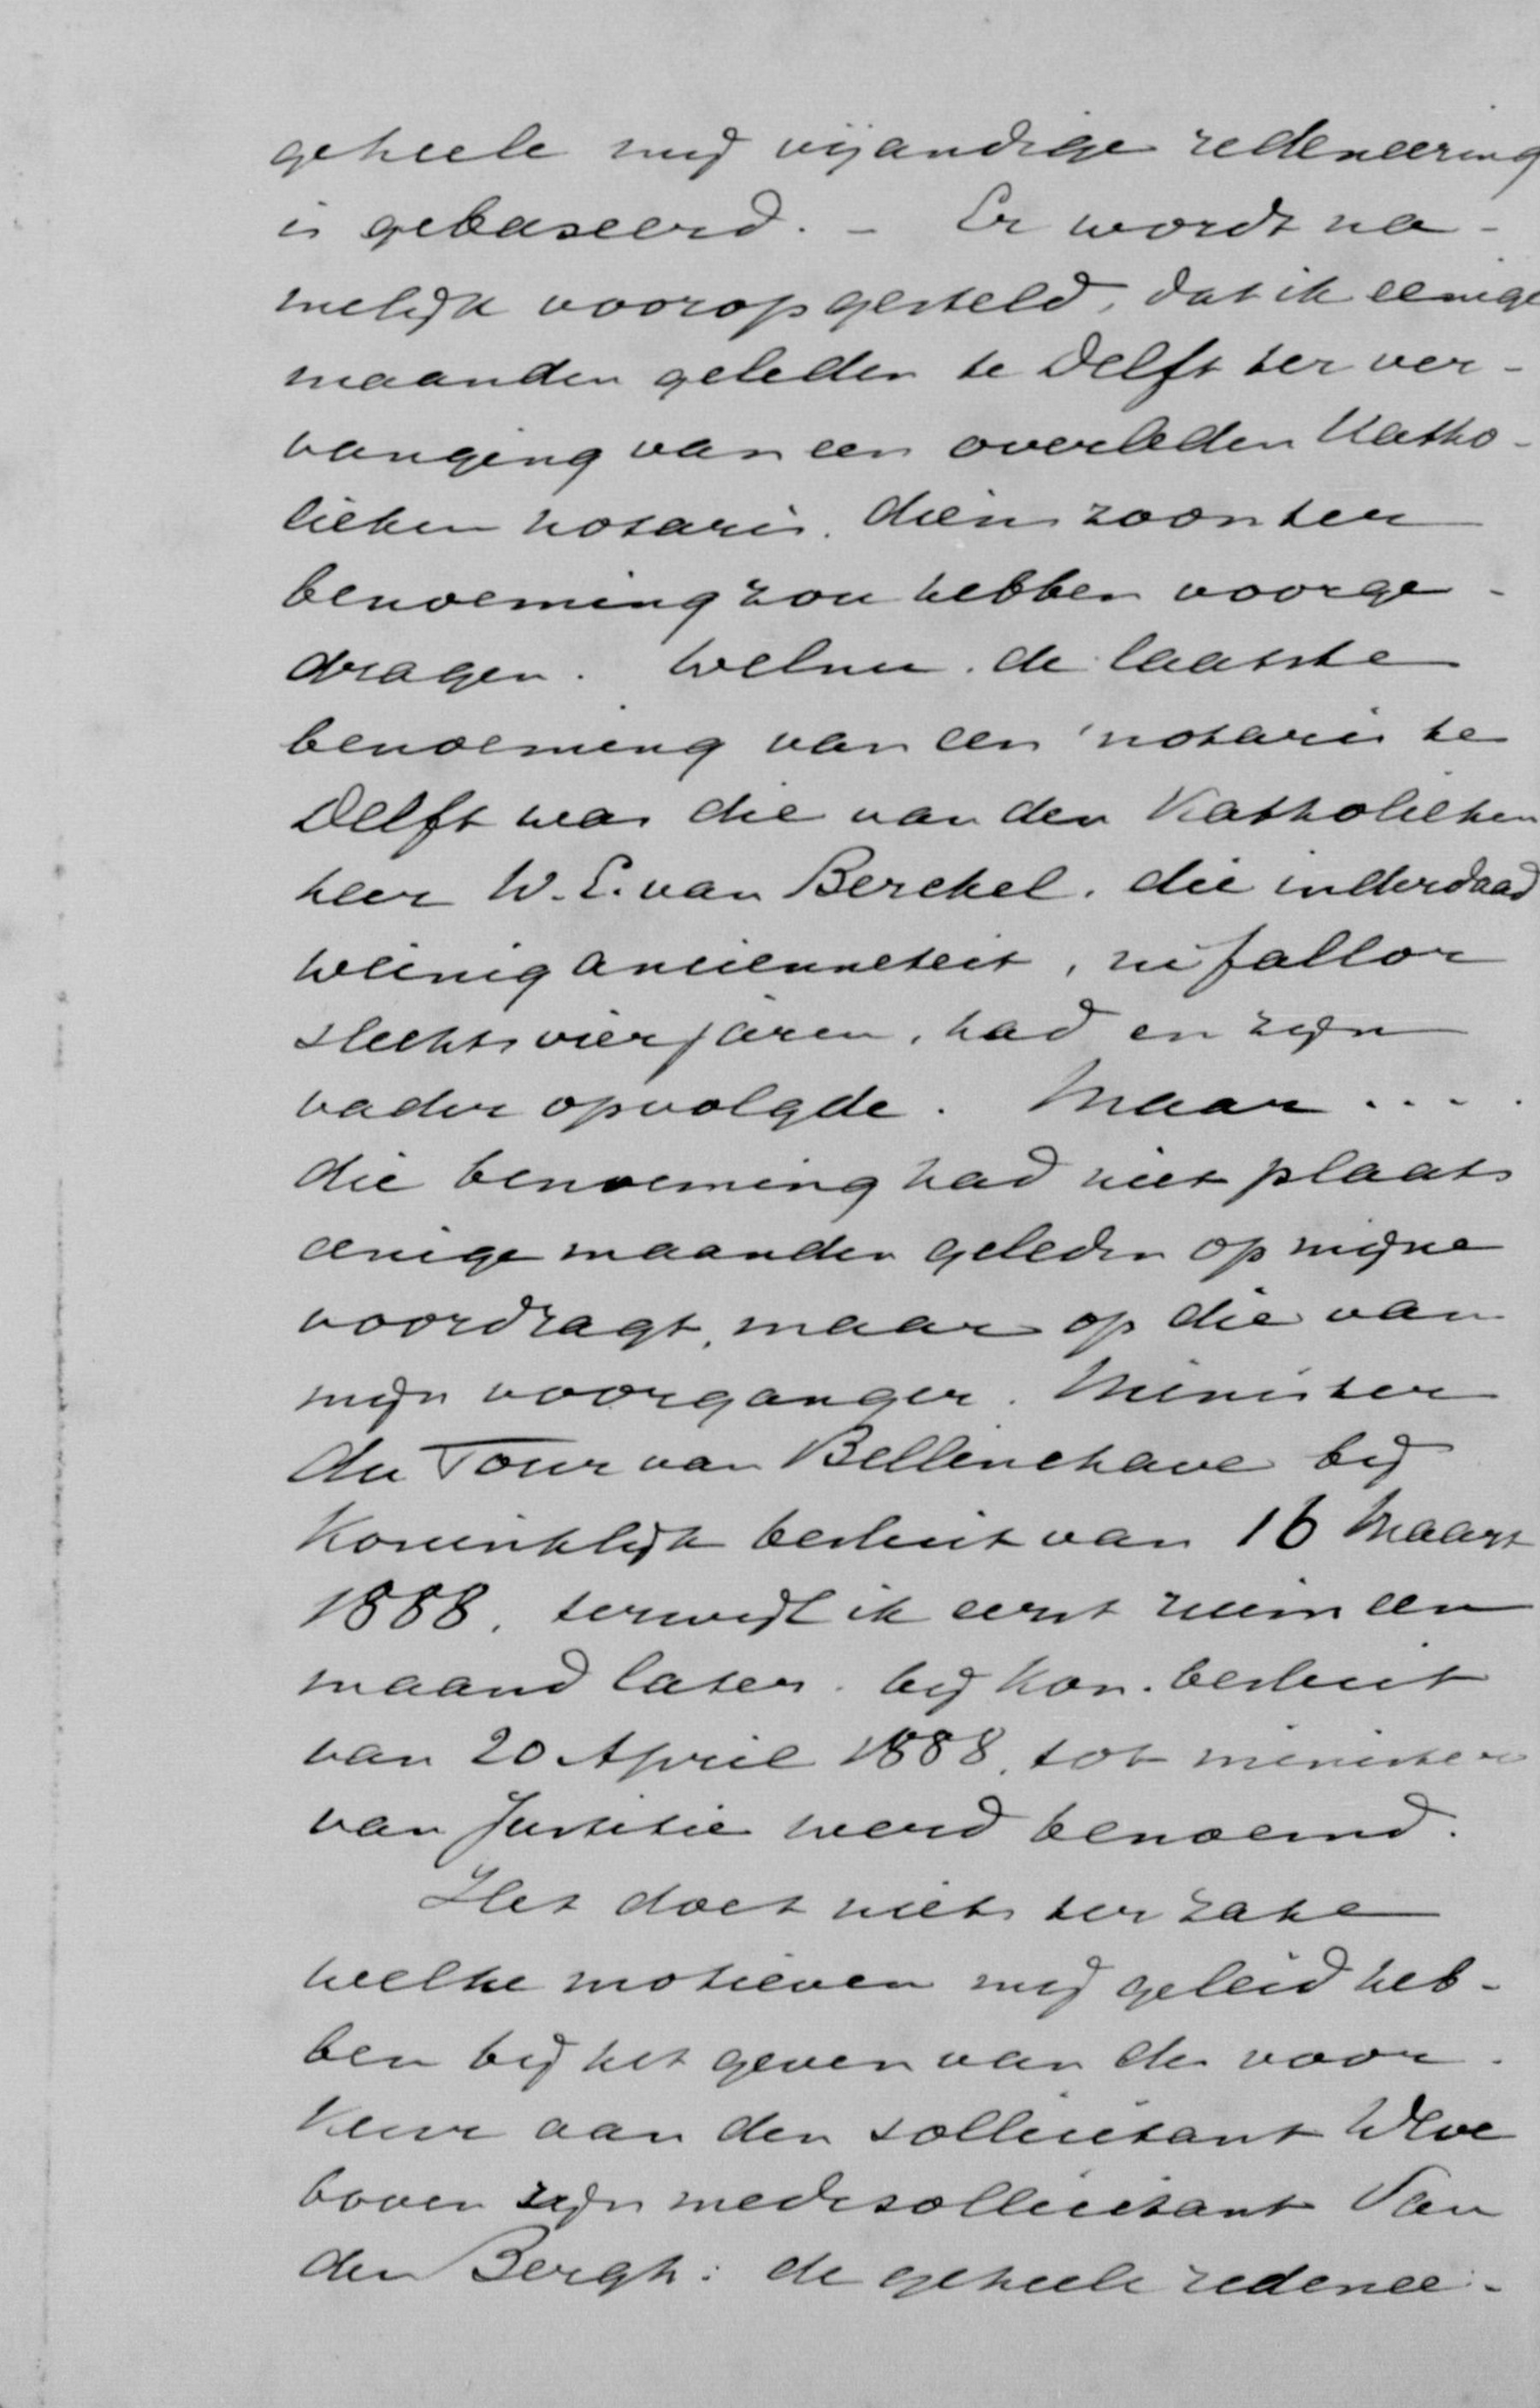 geheele mij vijandige redeneering
is gebaseerd. - Er wordt na-
melijk vooropgesteld, dat ik eenige
maanden geleden te Delft ter ver-
vanging van een overleden Katho-
lieken notaris, diens zoon ter
benoeming zou hebben voorge-
dragen. Welnu, de laatste
benoeming van een notaris te
Delft was die van den Katholieken
heer W. E. van Berckel, die inderdaad
weinig ancienneteit, ni fallor
slechts vier jaren, had en zijn
vader opvolgde. Maar ....
die benoeming had niet plaats
eenige maanden geleden op mijne
voordragt, maar op die van
mijn voorganger, Minister
du Tour van Bellinchave bij
Koninklijk besluit van 16 Maart
1888, terwijl ik eerst ruim een
maand later, bij Kon. besluit
van 20 April 1888, tot minister
van Justitie werd benoemd.
Het doet niets ter zake
welke motieven mij geleid heb-
ben bij het geven van de voor-
keur aan den sollicitant
boven zijn medesollicitant Van
den Bergh: de geheele redenee-